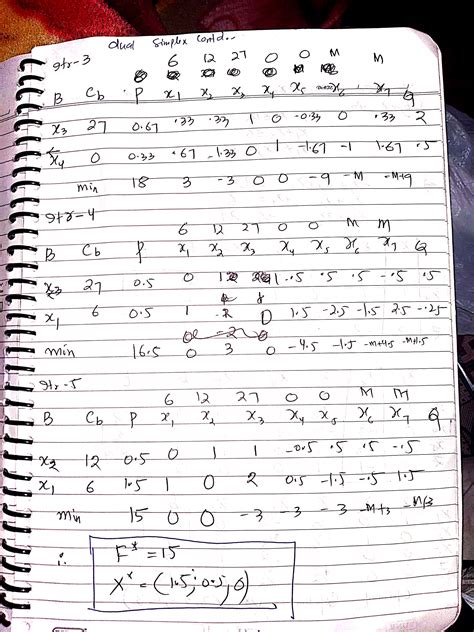 dual Simplex Contd..
Itr-3 6 12 27 0 0 M M
B Cb P x₁ x₂ x₃ x₄ x₅ x₆ x₇ Q
x₃ 27 0.67 .33 .33 1 0 -0.33 0 .33 2
x₄ 0 0.33 .67 -1.33 0 1 -1.67 -1 1.67 .5
min 18 3 -3 0 0 -9 -M -M+9
Itr-4 6 12 27 0 0 M M
B Cb P x₁ x₂ x₃ x₄ x₅ x₆ x₇ Q
x₃ 27 0.5 0 1 1 -.5 .5 .5 -.5 .5
x₁ 6 0.5 1 -2 0 1.5 -2.5 -1.5 2.5 -.25
min 16.5 0 3 0 -4.5 -1.5 -M+4.5 -M+1.5
Itr-5 6 12 27 0 0 M M
B Cb P x₁ x₂ x₃ x₄ x₅ x₆ x₇ Q
x₂ 12 0.5 0 1 1 -0.5 .5 .5 -.5
x₁ 6 1.5 1 0 2 0.5 -1.5 -.5 1.5
min 15 0 0 -3 -3 -3 -M+3 -M+3
∴ F* = 15
X* = (1.5; 0.5, 0)